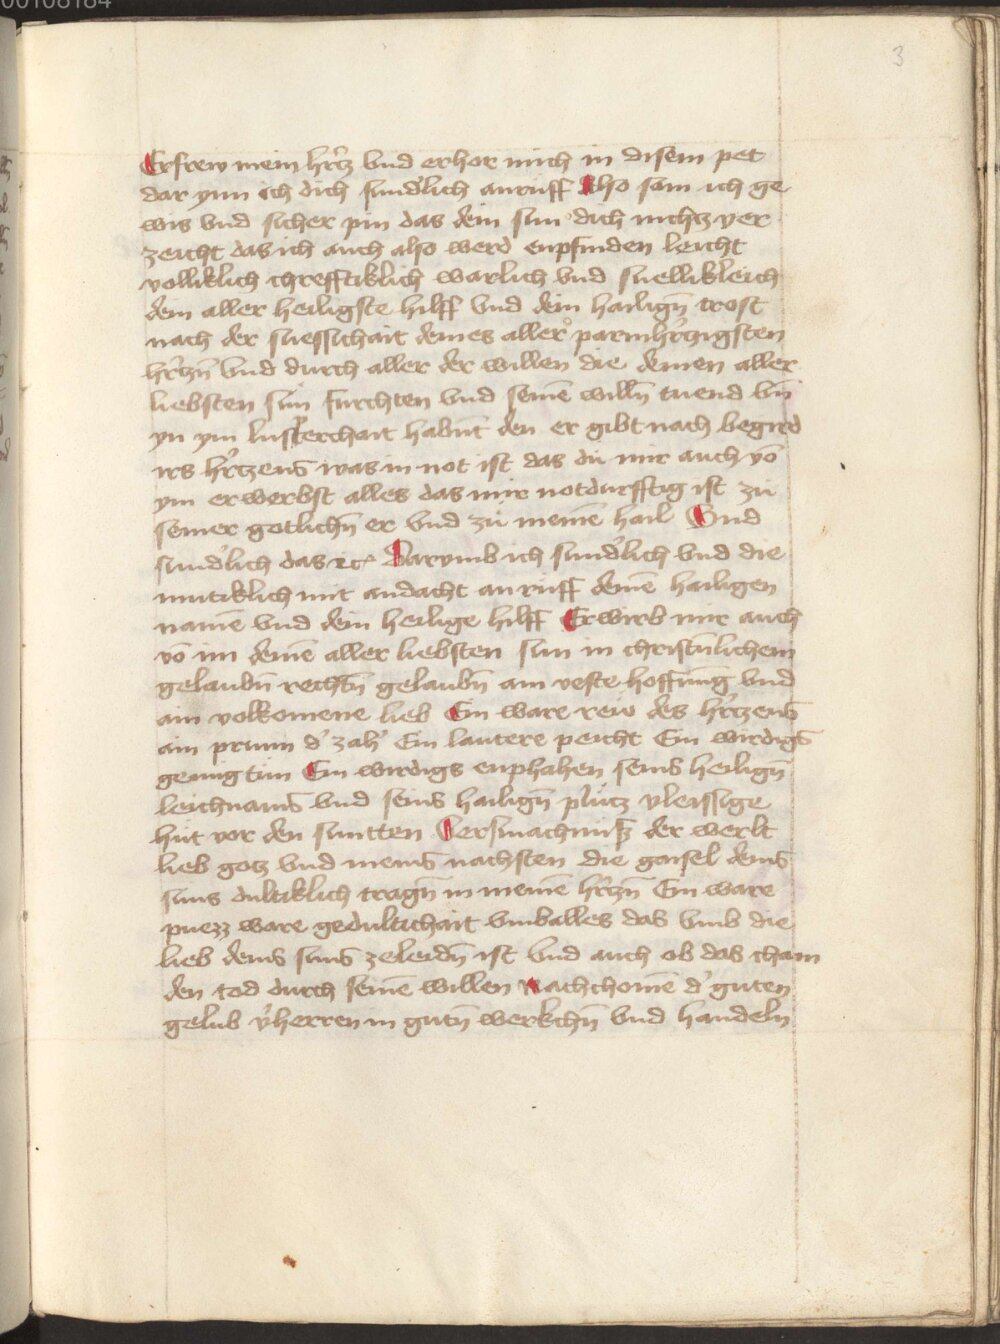 00108184
3
Erfrew mein hr̄cz vnd erhor mich in disem pet
dar ynn ich dich sund'lich anruff Also sam ich ge
wis vnd sicher pin das dein sun dich nichcz ver
zeicht das ich auch also werd enpfinden leicht
volliklich chrefftiklich warlich vnd snellikleich
dein aller heiligste hilff vnd dein hailign̄ trost
nach der suessichait deines aller parmhr̄czigsten
hr̄czn̄ vnd durch aller der willen die deinen aller
liebsten sun furchten vnd seinē willn̄ tuend vn̄
yn ym lusterchait habnt den er gibt nach begird
irs hr̄czens was in not ist das du mir auch vō
ym erwerbst alles das mir notdurfftig ist zu
seiner gotlichn̄ er vnd zu meinē hail Vnd
sund'lich das etc Darymb ich sund'lich vnd die
mutiklich mit andacht an ruff deinē hailigen
namē vnd dein heilige hilff Erwirb mir auch
vō im deinē aller liebsten sun in christnlichem
gelaubn̄ rechtn̄ gelaubn̄ ain veste hoffnūg vnd
ain volkomene lieb Ein ware reiw des hr̄czens
ain prunn d' zah' Ein lautere peicht Ein wirdigs
genugtun Ein wirdigs enphahen seins heilign̄
leichnams vnd seins hailign̄ plucz vleissige
hut vor den suntten Versmachnuss der werlt
lieb gotz vnd meins nachsten die gaisel deins
suns dultiklich tragn̄ in meinē hr̄czn̄ Ein ware
puezz ware gedultichait vmb alles das vmb die
lieb deins suns zeleidn̄ ist vnd auch ob das cham
den tod durch seinē willen Nachchomē d' guten
gelub v'herren in gutn̄ werkchn̄ vnd handeln